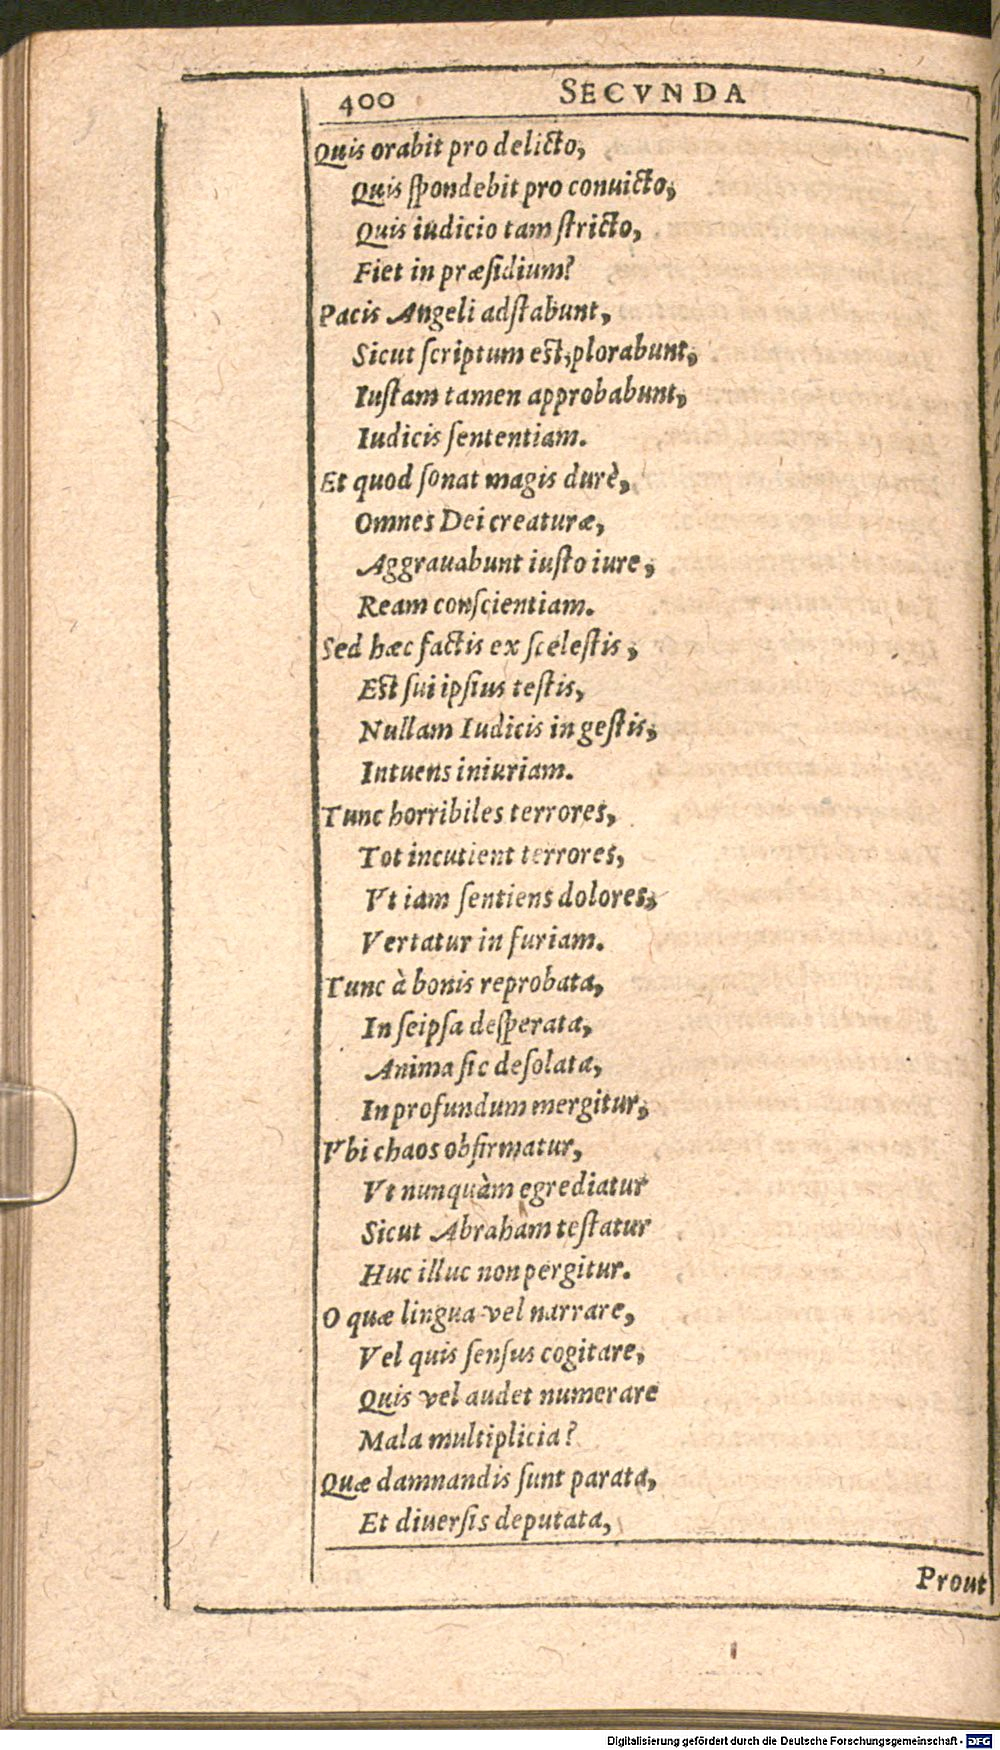 400 SECVNDA
Quis orabit pro delicto,
Quis spondebit pro conuicto,
Quis iudicio tam stricto,
Fiet in præsidium?
Pacis Angeli adstabunt,
Sicut scriptum est, plorabunt,
Iustam tamen approbabunt,
Iudicis sententiam.
Et quod sonat magis durè,
Omnes Dei creaturæ,
Aggrauabunt iusto iure,
Ream conscientiam.
Sed hæc factis ex scelestis,
Est sui ipsius testis,
Nullam Iudicis in gestis,
Intuens iniuriam.
Tunc horribiles terrores,
Tot incutient terrores,
Vt iam sentiens dolores,
Vertatur in furiam.
Tunc à bonis reprobata,
In seipsa desperata,
Anima sic desolata,
In profundum mergitur,
Vbi chaos obfirmatur,
Vt nunquàm egrediatur
Sicut Abraham testatur
Huc illuc non pergitur.
O quæ lingua vel narrare,
Vel quis sensus cogitare,
Quis vel audet numerare
Mala multiplicia?
Quæ damnandis sunt parata,
Et diuersis deputata,
Prout
Digitalisierung gefördert durch die Deutsche Forschungsgemeinschaft - DFG